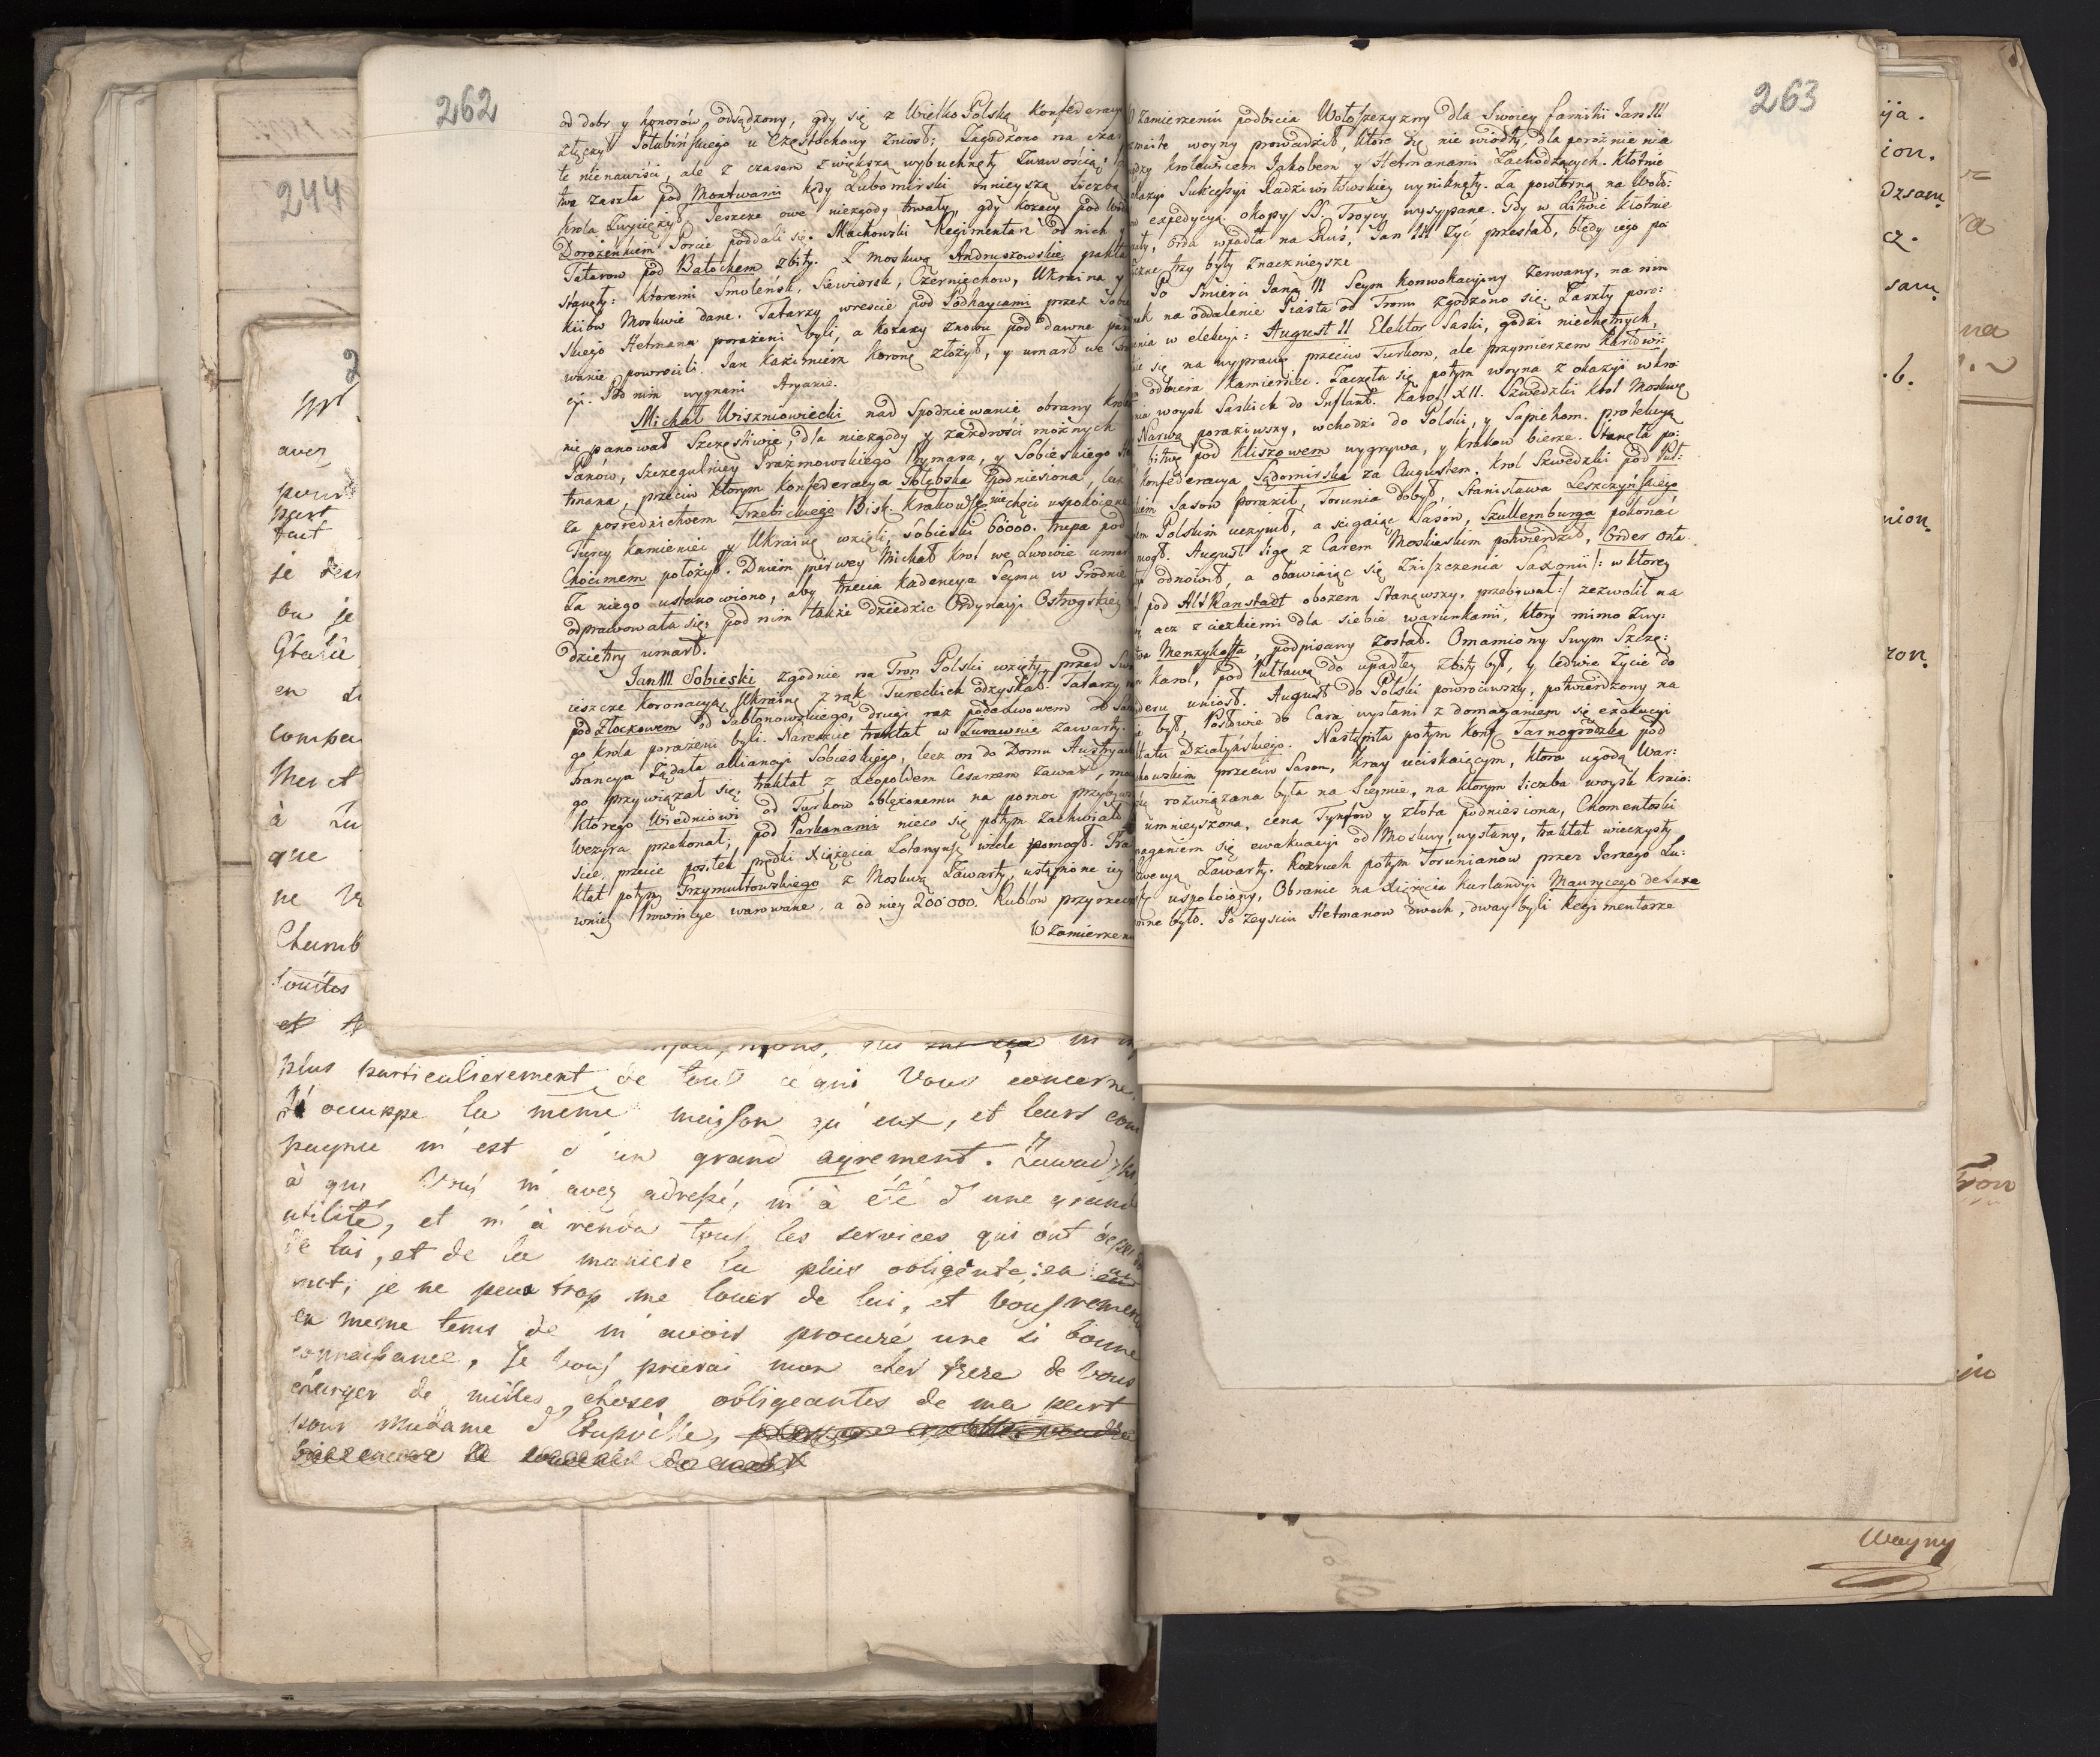 262
od dobr y honorów odsądzony, gdy się z Wielko Polską Konfederacyą
złączył Połubińskiego u Częstochowy zniosł; Zagodzono na czas
te nienawiści, ale z czasem z większą wybuchnęły żwawością;
twa zaszła pod Montwami kędy Lubomirski mnieyszą liczbą
Krola zwyciężył. Jeszcze owe niezgody trwały, gdy Kozacy pod
Dorożenkiem Porcie poddali się. Machowski Regimentarz od nich y
Tatarow pod Batochem zbity. Z Moskwą Andruszowskie pakta
stanęły: ktoremi Smoleńsk, Siewiersk, Czerniechow, Ukraina y
Kiiów Moskwie dane. Tatarzy wreście pod Podhaycami przez Sobie
skiego Hetmana porażeni byli, a Kozacy znowu pod dawne pano
wanie powrocili. Jan Kazimierz Koronę złożył, y umarł we Fran
cyi. Pod nim wygnani Aryanie.
Michał Wiszniowiecki nad spodziewanie obrany Krolem
nie panował szczęśliwie, dla niezgody y zazdrości możnych
Panów, szczegulniey Prażmowskiego Prymasa, y Sobieskiego He
tmana, przeciw ktorym Konfederacya Gołębska podniesiona, lecz
za pośrednictwem Trzebickiego Bisk. Krakowsk. niechęci uspokoiene
Turcy Kamieniec y Ukrainę wzięli, Sobieski 60000. trupa pod
Chocimem położył. Dniem pierwey Michał Krol we Lwowie umarł
Za niego ustanowiono, aby trzecia kadencya Seymu w Grodnie
odprawowała się, pod nim także dziedzic Ordynacyi Ostrogskiey
dzietny umarł.
Jan III. Sobieski zgodnie na Tron Polski wzięty, przed
ieszcze Koronacyą Ukrainę z rąk Tureckich odzyskał. Tatarzy
pod Złoczowem od Jabłonowskiego, drugi raz pode Lwowem od
go Krola porażeni byli. Nareszcie traktat w Zurawnie zawarty.
Francya żądała alliancyi Sobieskiego, lecz on do Domu Austryac
go przywiązał się, traktat z Leopoldem Cesarzem zawarł, mocą
ktorego Wiedniowi od Turkow oblężonemu na pomoc przybywszy
Wezyra przekonał, pod Parkanami nieco się potym zachwiało
scie, przecie posiłek prędki Xiążęcia Lotaryngij wiele pomogł. Tra
ktat potym Grzymułtowskiego z Moskwą zawarty, ustąpione iey
wniey Prowincye warowane, a od niey 200000. Rublow przyrzecz
W Zamierzeniu
263
W Zamierzeniu podbicia Wołoszczyzny dla Swoiey familii Jan III
rozmaite woyny prowadził, ktore się nie wiodły, dla poróżnienia
między Krolewicem Jakobem y Hetmanami zachodzących. Kłotnie
okazyi Sukcessyi Radziwiłłowskiey wyniknęły. Za powtorną na Woło:
expedycyą okopy SS. Troycy wysypane. Gdy w Litwie kłotnie
Orda wpadła na Ruś, Jan III żyć przestał, błędy iego po
liczne trzy były znacznieysze
Po Smierci Jana III Seym Konwokacyiny zerwany, na nim
na oddalenie Piasta od Tronu zgodzono się. Zaszły poro:
nia w elekcyi: August II Elektor Saski, godzi niechętnych,
się na wyprawę przeciw Turkom, ale przymierzem Karłowi:
odbiera Kamieniec. Zaczęła się potym woyna z okazyi wkro
nia woysk Saskich do Inflant. Karol XII. Szwedzki Krol Moskwę
Narwą poraziwszy, wchodzi do Polski, y Sapiehom protekcyą
bitwę pod Kliszowem wygrywa, y Krakow bierze. Stanęła po:
Konfederacya Sędomirska za Augustem. Krol Szwedzki pod Puł:
kiem Sasow poraził, Torunia dobył, Stanisława Leszczyńskiego
lem Polskim uczynił, a scigaiąc Sasów, Szullemburga pokonać
mogł. August ligę z Carem Moskieskim potwierdził, Order Orła
odnowił, a obawiaiąc się zniszczenia Saxonij /: w ktorey
pod Alt Ranstadt obozem stanąwszy, przebywał :/ zezwolił na
acz z ciężkiemi dla siebie warunkami, ktory mimo zwy:
Menzykoffa, podpisany został. Omamiony swym szczę:
Karol, pod Pułtawą do upadłey zbity był, y ledwie życie do
Benderu uniosł. August do Polski powrociwszy, potwierdzony na
był, Posłowie do Cara wysłani z domaganiem się exekucyi
traktatu Działyńskiego. Nastąpiła potym Konf. Tarnogrodzka pod
chowskim przeciw Sasom, Kray uciskaiącym, ktora ugodą War:
rozwiązana była na Seymie, na ktorym liczba woysk kraio:
umnieyszona, cena Tynfow y złota podniesiona, Chomentoski
maganiem się ewakuacyi od Moskwy wysłany, traktat wieczysty
Szwecyą zawarty. Rozruch potym Torunianow przez Jerzego Lu:
uspokoiony, Obranie na Xiążęcia Kurlandyi Maurycego de Saxe
ne było. Po zeysciu Hetmanow dwoch, dway byli Regimentarze
244
avez
pour
part
tait
je
Grâce
en
compa
Merct
à
que
ne
Chamb
toutes
et
plus particulierement de tout ce qui Vous concerne.
J'ocuppe la même maison qu'eux, et leurs com
pagnie m'est d'un grand agrement. Zawadzki,
à qui Vous m'avez adressé, m'à été d'une grande
utilité, et m'à rendu tous les services qui ont dependu
de lui, et de la maniere la plus obligente; en un
mot, je ne peux trop me louer de lui, et Vous remercie
en meme tems de m'avoir procuré une si bonne
connaissance. Je Vous prierai mon cher frere de Vous
charger de milles choses obligeantes de ma part
pour Madame d'
ija.
ion.
cz.
sam
b.
nion
zon
na
Woyny